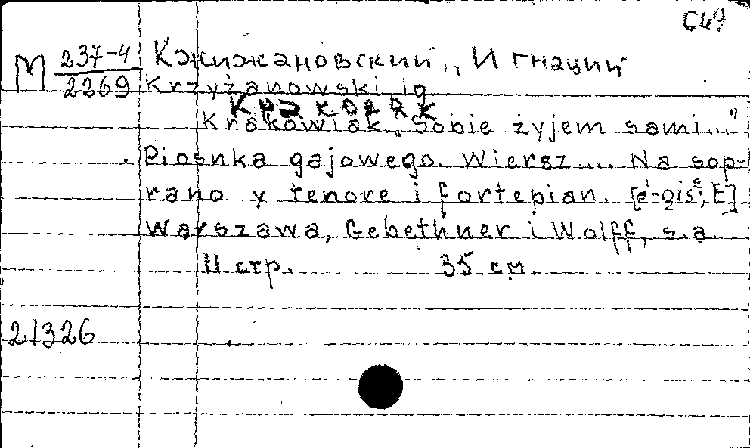 С49
М 237-4/2269 Кжижановский, Игнаций
Krzyżanowski Ig
Краковяк
Krakowiak „Sobie żyjem sami..."
Piosnka gajowego. Wiersz... Na sop-
rano y tenore i fortepian. [e'-gis², E]
Warszawa, Gebethner i Wolff, s.a.
11 стр. 35 см.
21326